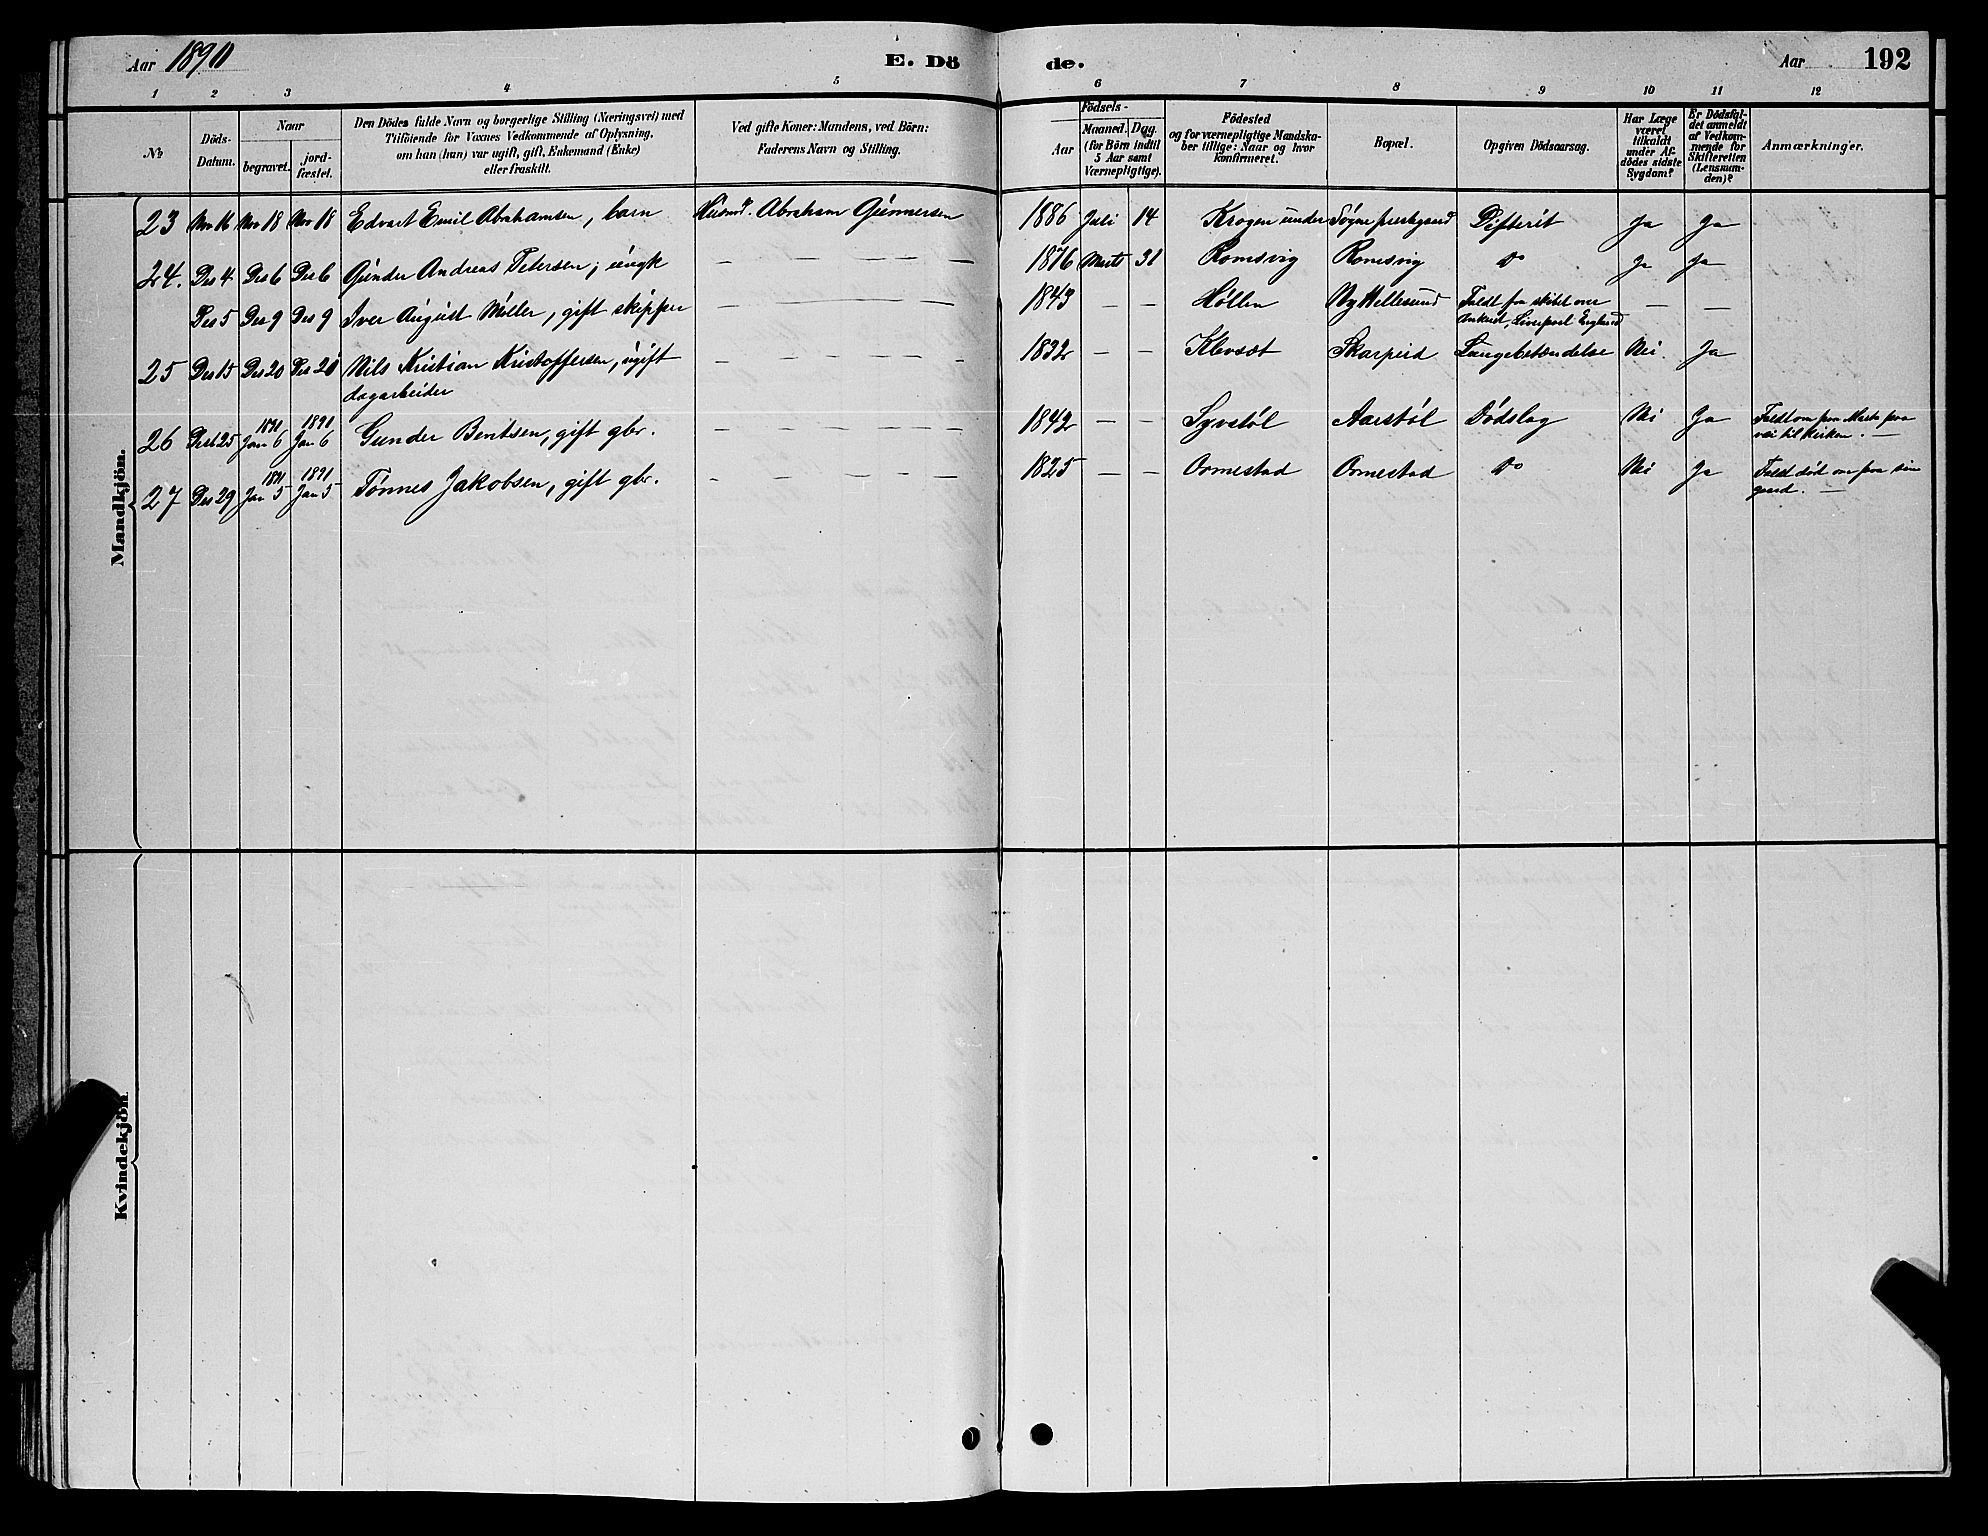 Aar 1890 E. Dö de. Aar 192
1 2 3 4 5 6 7 8 9 10 11 12
№
Döds-
Datum.
Naar
begravet.
jord-
fæstet.
Den Dödes fulde Navn og borgerlige Stilling (Næringsvei) med
Tilföiende for Voxnes Vedkommende af Oplysning,
om han (hun) var ugift, gift, Enkemand (Enke)
eller fraskilt.
Ved gifte Koner: Mandens, ved Börn:
Faderens Navn og Stilling.
Födsels-
Aar
Maaned. Dag.
(for Börn indtil
5 Aar samt
Værnepligtige).
Födested
og for værnepligtige Mandska-
ber tillige: Naar og hvor
konfirmeret.
Bopæl.
Opgiven Dödsaarsag.
Har Læge
været
tilkaldt
under Af-
dödes sidste
Sygdom?
Er Dödsfal-
det anmeldt
af Vedkom-
mende for
Skifteretten
(Lensman-
den)?
Anmærkninger.
Mandkjön.
23 Nov 16 Nov 18 Nov 18 Edvart Emil Abrahamsen, barn Husmd. Abraham Gunnersen 1886 Juli 14 Krogen under Søgne prestgaard Difterit Ja Ja
24. Des 4 Des 6 Des 6 Gunder Andreas Petersen; ungk — — — — — 1876 Marts 31 Romsvig Romsvig Do Ja Ja
Des 5 Des 9 Des 9 Iver August Møller, gift skipper — — — — — 1843 — — Høllen Ny Hellesund Faldt fra skibet over — —
Liverpool England
25 Des 15 Des 20 Des 20 Nils Kristian Kristoffersen, ugift — — — — — 1832 — — Klevsæt Skarpeid Lungebetændelse Nei Ja
dagarbeider
1891 1891
26 Des 25 Jan 6 Jan 6 Gunder Bentsen, gift gbr. — — — — — 1842 — — Syvstøl Aarstøl Dødslag Nei Ja Faldt om paa Marka paa
vei til kirken. —
1891 1891
27 Des 29 Jan 5 Jan 5 Tønnes Jakobsen, gift gbr. — — — — — 1825 — — Ormestad Ormestad Do Nei Ja Faldt død om paa sin
gaard. —
Kvindekjön.